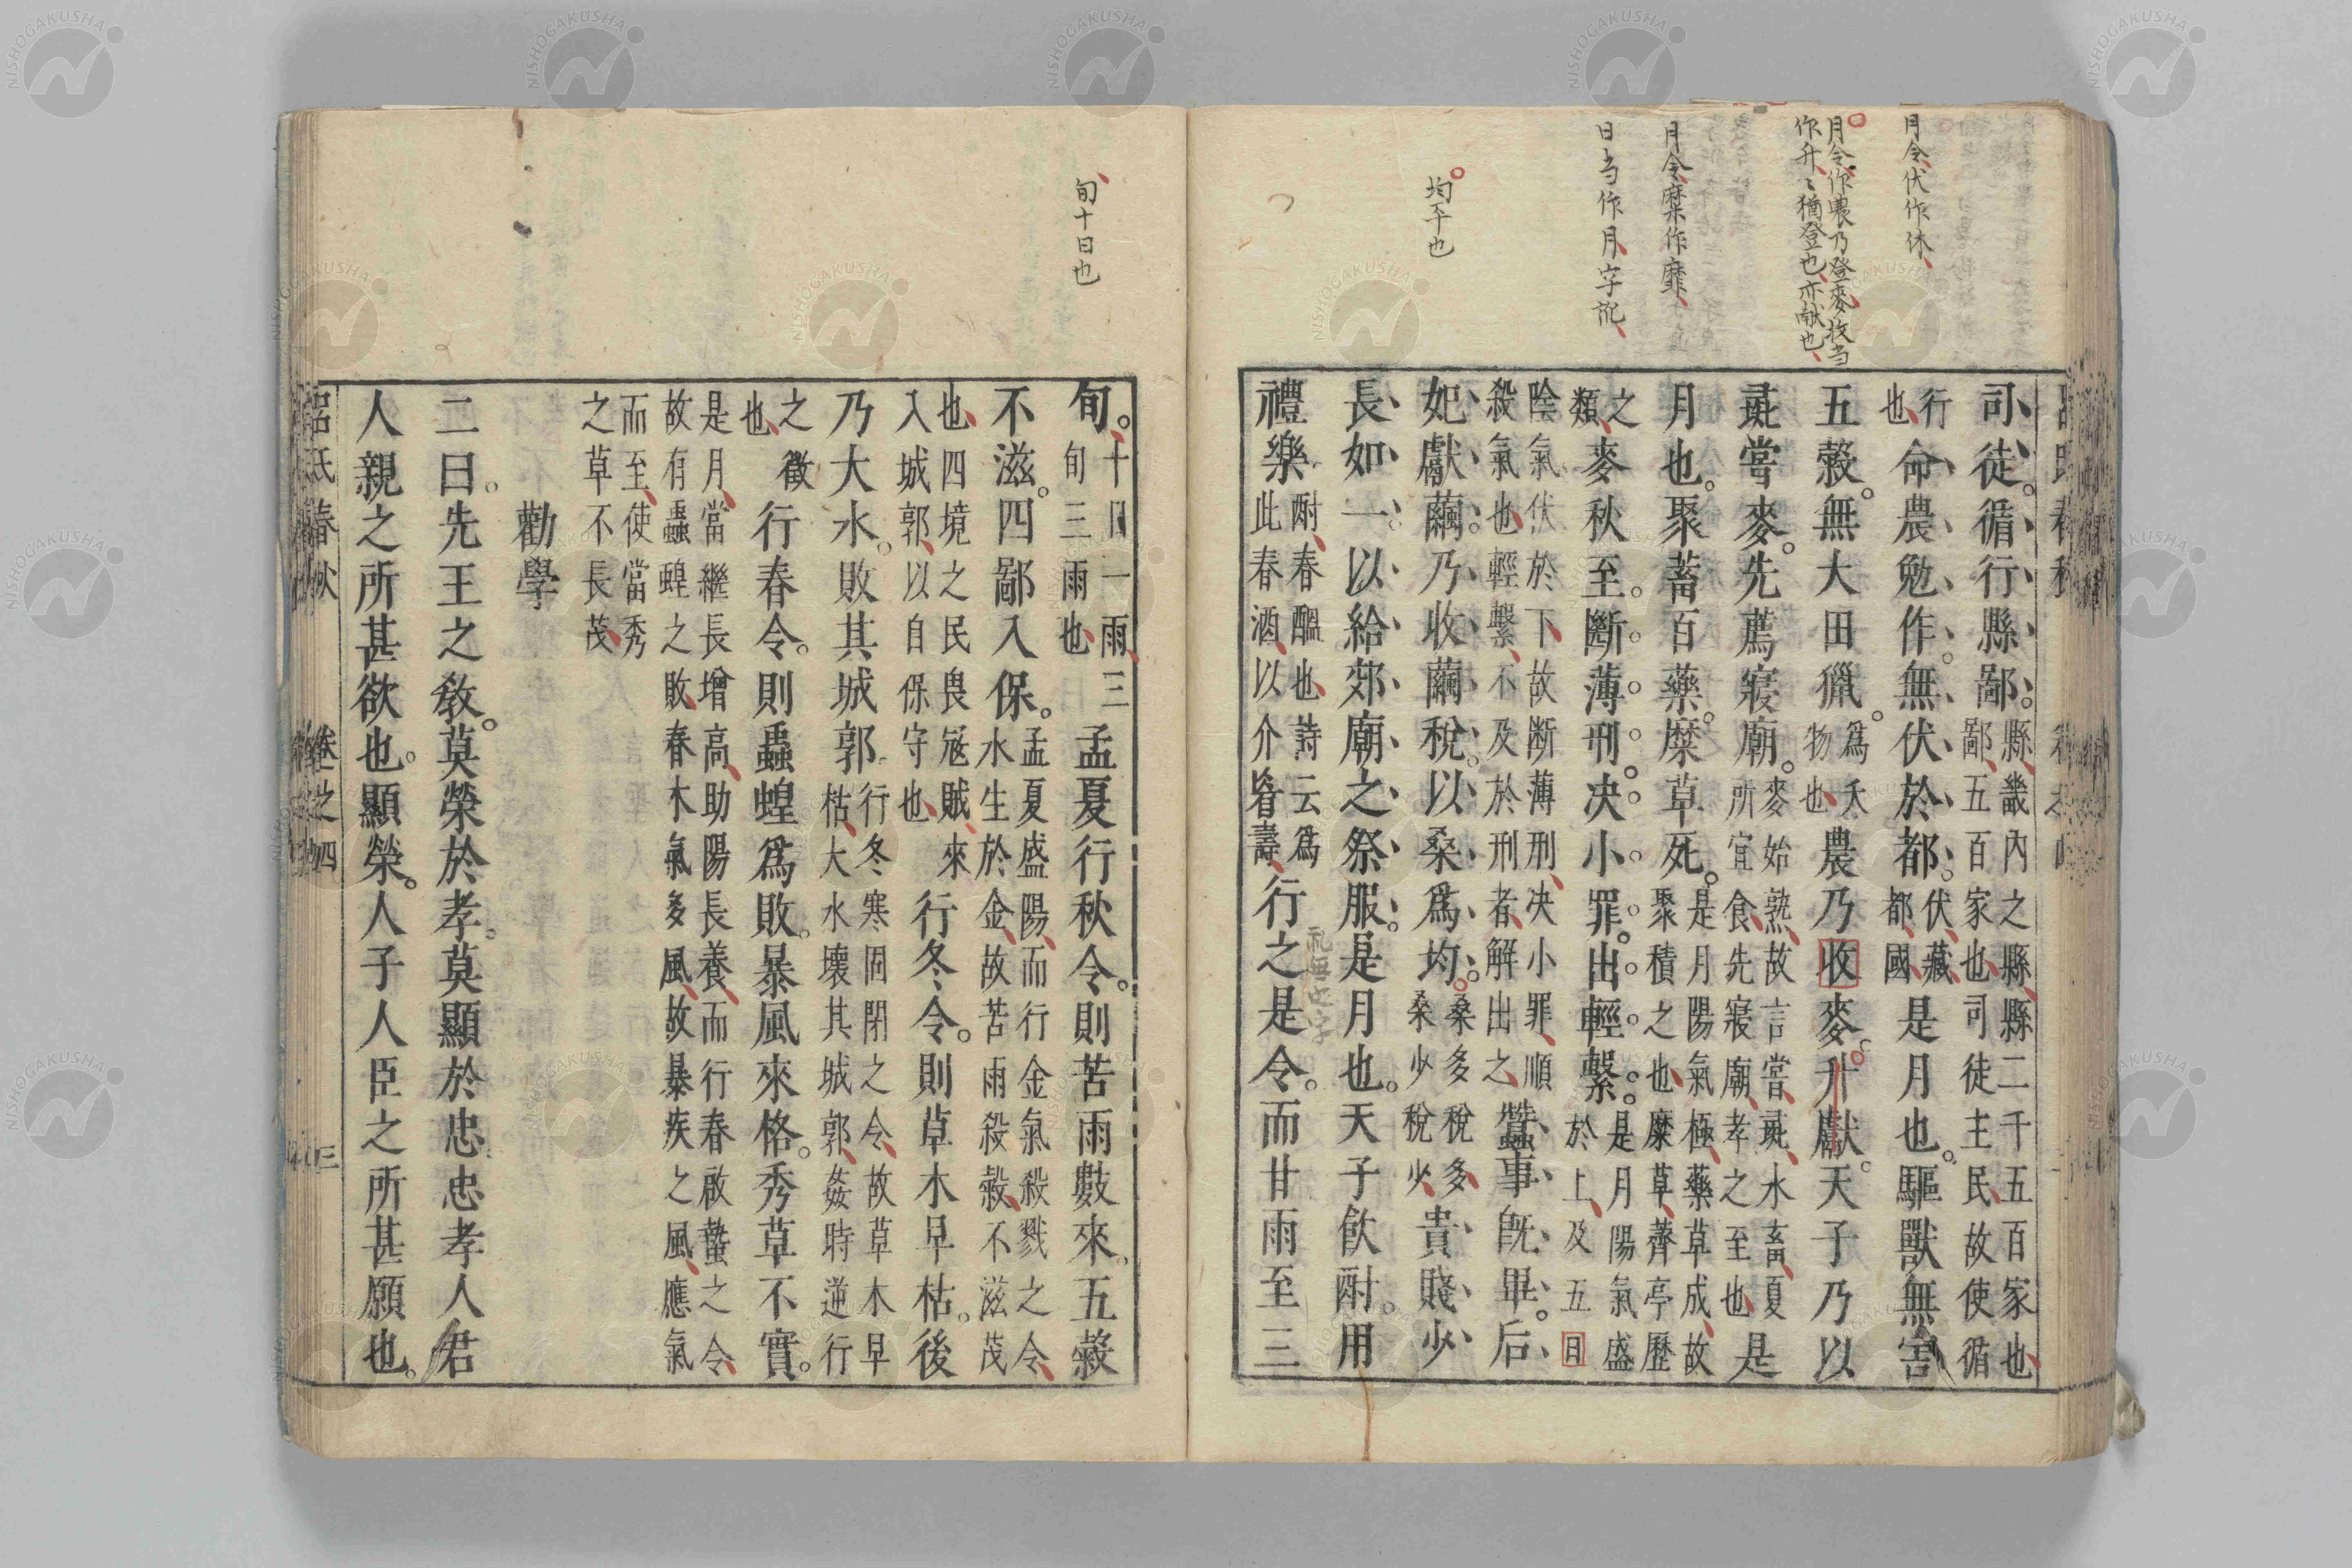 月令伏作休
月令作農乃登麥收当
作升〻猶登也亦献也
月令糜作靡
日当作月字訛
均平也
司徒。循行縣鄙。縣畿內之縣縣二千五百家也鄙五百家也司徒主民故使循
行也命農勉作。無伏於都。伏藏都國是月也。驅獸無害
五穀。無大田獵。爲夭物也農乃收麥。升獻。天子乃以
彘嘗麥。先薦寢廟。麥始熟故言嘗彘水畜夏所宜食先寢廟孝之至也是
月也。聚蓄百藥。糜草死。是月陽氣極藥草成故聚積之也糜草薺亭歷
之類麥秋至。斷薄刑。决小罪。出輕繫。是月陽氣盛於上及五日
陰氣伏於下故断薄刑决小罪順殺氣也輕繫不及於刑者解出之蠶事旣畢。后
妃獻繭。乃收繭稅。以桑爲均。桑多稅多桑少稅少貴賤少
長如一。以給郊廟之祭服。是月也。天子飲酎。用
礼無也字
禮樂酎春醞也詩云爲此春酒以介眉壽行之是令。而甘雨至三
旬十日也
旬。十日一雨三旬三雨也孟夏行秋令。則苦雨數來。五穀
不滋。四鄙入保。孟夏盛陽而行金氣殺戮之令水生於金故苦雨殺穀不滋茂
也四境之民畏冦賊來入城郭以自保守也行冬令。則草木早枯。後
乃大水。敗其城郭。行冬寒固閉之令故草木早枯大水壞其城郭姦時逆行
之徵也行春令。則蟲蝗爲敗。暴風來格。秀草不實。
是月當繼長增高助陽長養而行春啟蟄之令故有蟲蝗之敗春木氣多風故暴疾之風應氣
而至使當秀之草不長茂
勸學
二曰。先王之敎。莫榮於孝。莫顯於忠。忠孝人君
人親之所甚欲也。顯榮。人子人臣之所甚願也。
呂氏春秋 卷之四 三